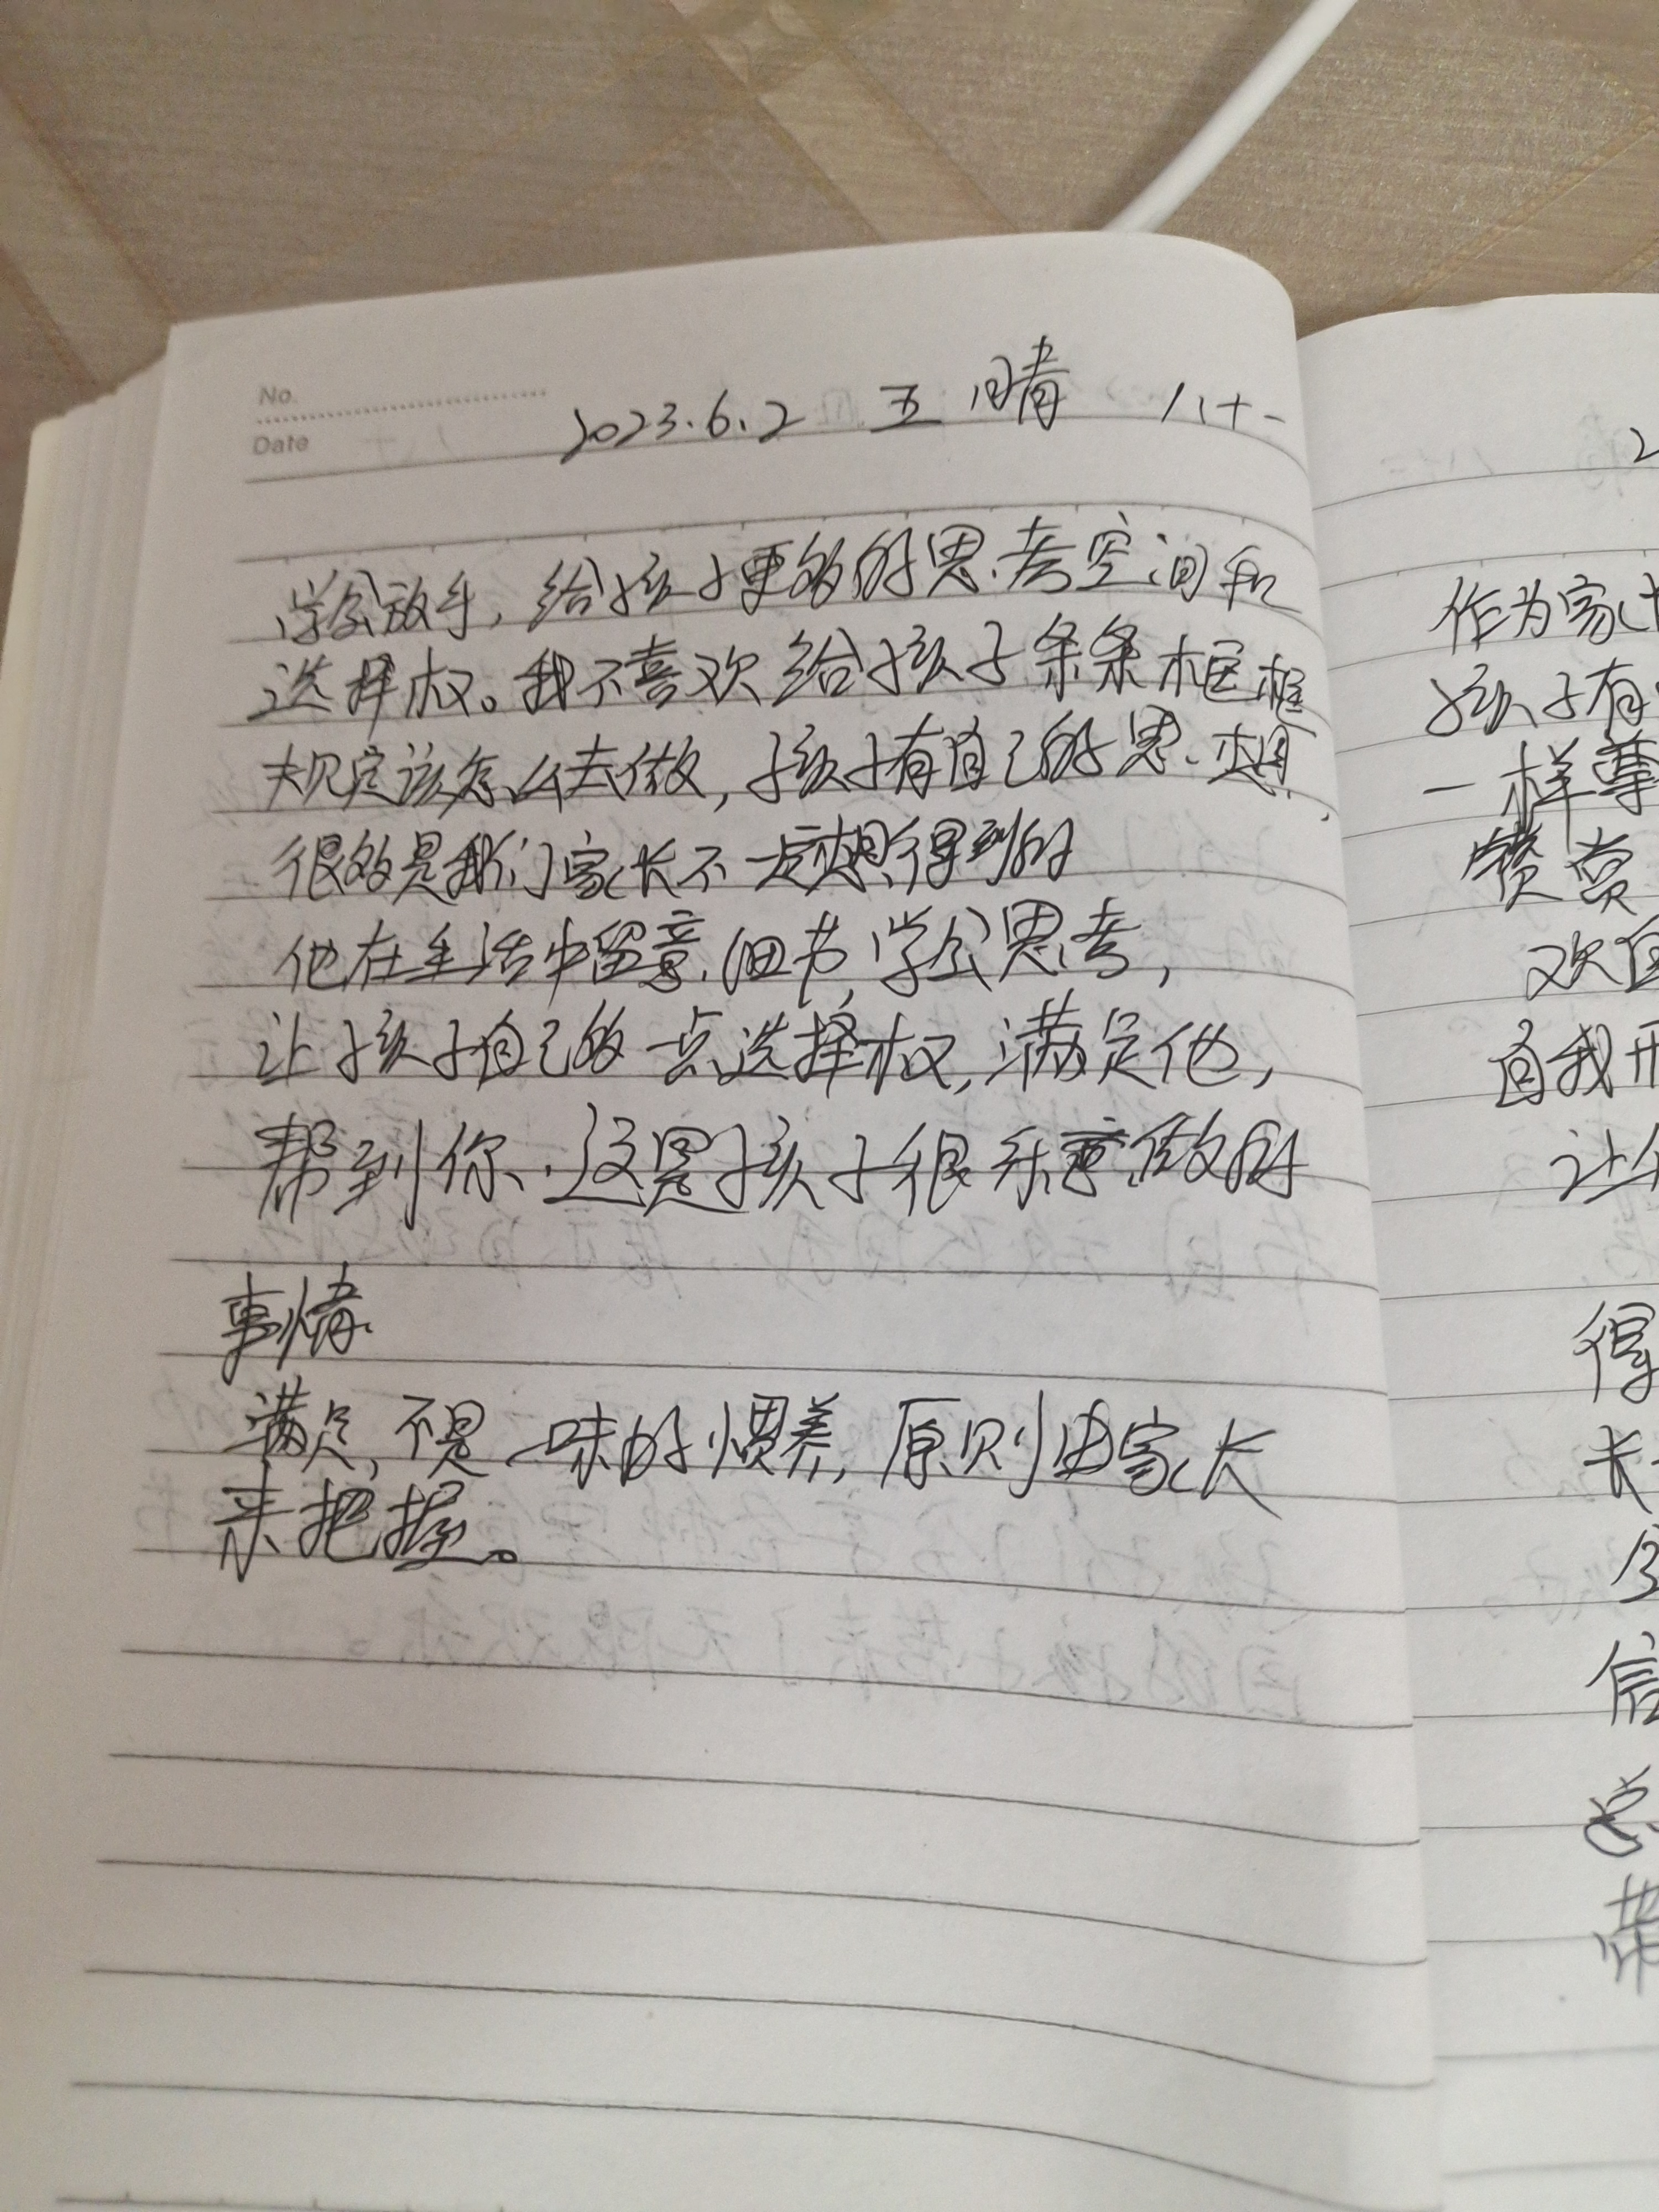 No.
Date
2023.6.2 五 晴 八十一
学会放手,给孩子更多的思考空间和
选择权。我不喜欢给孩子条条框框
规定该怎么去做,孩子有自己的思想,
很多是我们家长不一定想得到的
他在生活中留意细节,学会思考,
让孩子自己的一点选择权,满足他,
帮到你.这是孩子很乐意做的
事情.
满足,不是一味的惯养,原则由家长
来把握。
2
作为家
孩子有
一样尊
赞赏
欢
自我
让
得
长
信
带